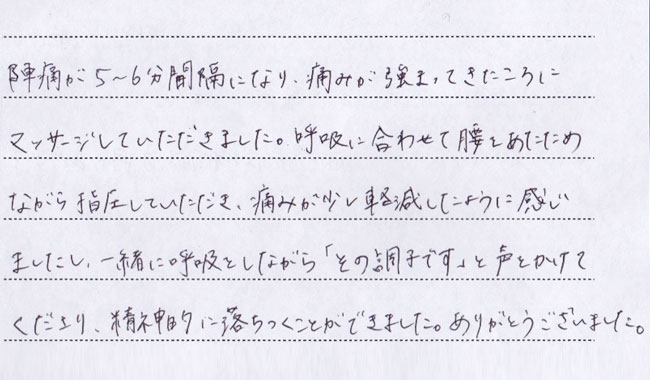 陣痛が5~6分間隔になり、痛みが強まってきたころに
マッサージしていただきました。呼吸に合わせて腰をあたため
ながら指圧していただき、痛みが少し軽減したように感じ
ましたし、一緒に呼吸をしながら「その調子です」と声をかけて
くださり、精神的に落ちつくことができました。ありがとうございました。